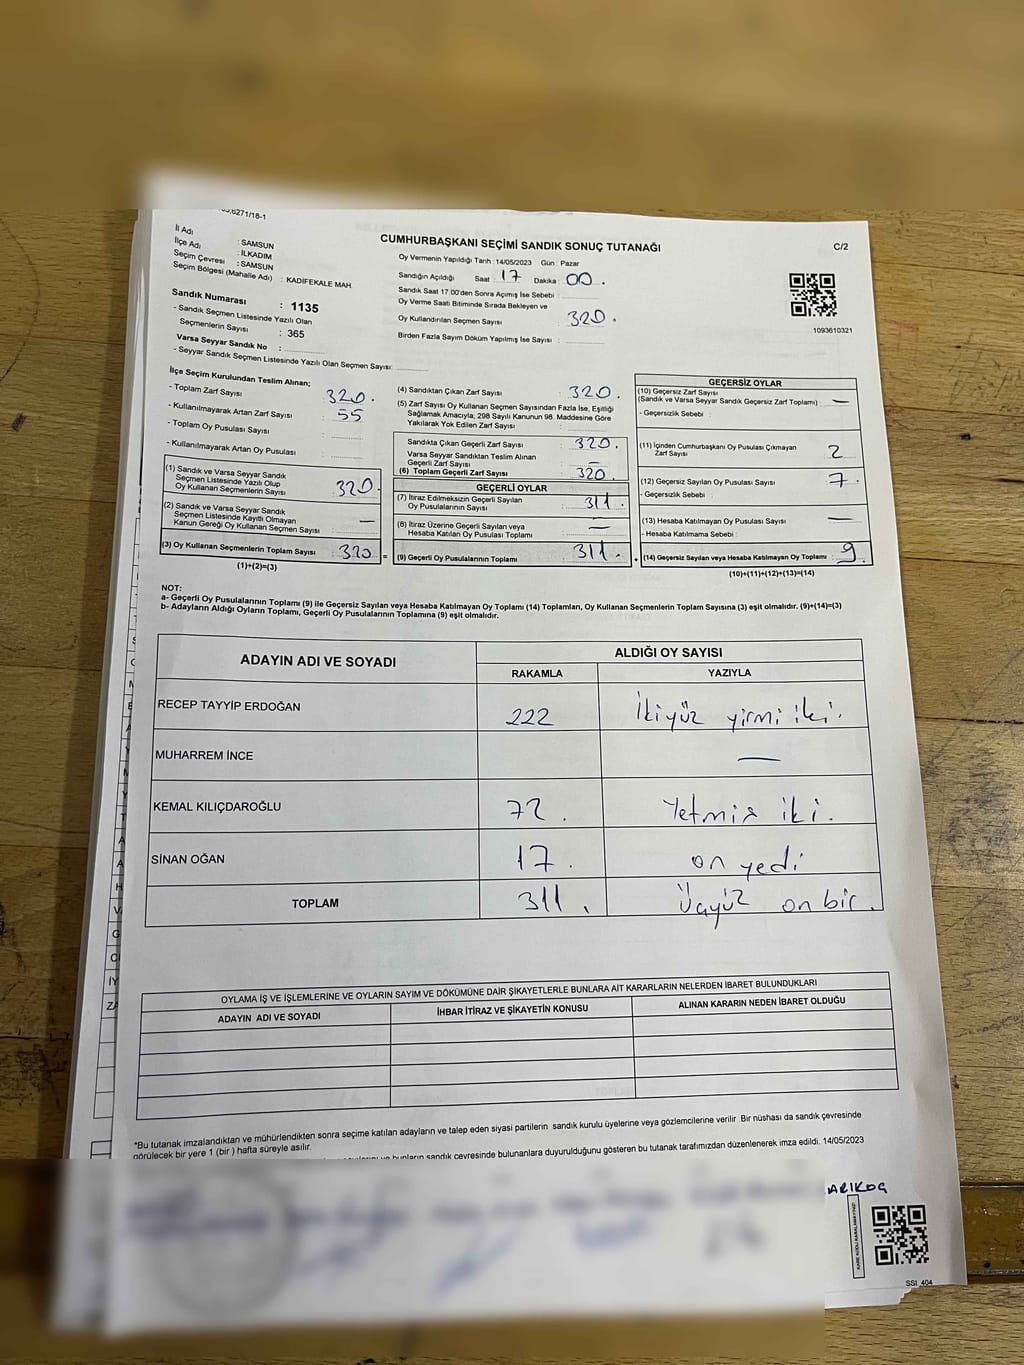 6271/18-1
CUMHURBAŞKANI SEÇİMİ SANDIK SONUÇ TUTANAĞI
C/2
İl Adı : SAMSUN
İlçe Adı : İLKADIM
Seçim Çevresi : SAMSUN
Seçim Bölgesi (Mahalle Adı) : KADİFEKALE MAH
Sandık Numarası : 1135
- Sandık Seçmen Listesinde Yazılı Olan
Seçmenlerin Sayısı : 365
Varsa Seyyar Sandık No :
- Seyyar Sandık Seçmen Listesinde Yazılı Olan Seçmen Sayısı:
Oy Vermenin Yapıldığı Tarih : 14/05/2023 Gün : Pazar
Sandığın Açıldığı Saat : 17 Dakika : 00.
Sandık Saat 17:00'den Sonra Açımış İse Sebebi :
Oy Verme Saati Bitiminde Sırada Bekleyen ve
Oy Kullandırılan Seçmen Sayısı : 320.
Birden Fazla Sayım Döküm Yapılmış İse Sayısı :
1093610321
İlçe Seçim Kurulundan Teslim Alınan;
- Toplam Zarf Sayısı : 320.
- Kullanılmayarak Artan Zarf Sayısı : 55
- Toplam Oy Pusulası Sayısı :
- Kullanılmayarak Artan Oy Pusulası :
(1) Sandık ve Varsa Seyyar Sandık
Seçmen Listesinde Yazılı Olup
Oy Kullanan Seçmenlerin Sayısı : 320.
(2) Sandık ve Varsa Seyyar Sandık
Seçmen Listesinde Kayıtlı Olmayan
Kanun Gereği Oy Kullanan Seçmen Sayısı : —
(3) Oy Kullanan Seçmenlerin Toplam Sayısı : 320 =
(1)+(2)=(3)
(4) Sandıktan Çıkan Zarf Sayısı : 320.
(5) Zarf Sayısı Oy Kullanan Seçmen Sayısından Fazla İse, Eşitliği
Sağlamak Amacıyla; 298 Sayılı Kanunun 98. Maddesine Göre
Yakılarak Yok Edilen Zarf Sayısı :
Sandıkta Çıkan Geçerli Zarf Sayısı : 320.
Varsa Seyyar Sandıktan Teslim Alınan
Geçerli Zarf Sayısı : —
(6) Toplam Geçerli Zarf Sayısı : 320.
GEÇERLİ OYLAR
(7) İtiraz Edilmeksizin Geçerli Sayılan
Oy Pusulalarının Sayısı : 311.
(8) İtiraz Üzerine Geçerli Sayılan veya
Hesaba Katılan Oy Pusulası Toplamı : —
(9) Geçerli Oy Pusulalarının Toplamı : 311.
GEÇERSİZ OYLAR
(10) Geçersiz Zarf Sayısı
(Sandık ve Varsa Seyyar Sandık Geçersiz Zarf Toplamı) : —
- Geçersizlik Sebebi :
(11) İçinden Cumhurbaşkanı Oy Pusulası Çıkmayan
Zarf Sayısı : 2
(12) Geçersiz Sayılan Oy Pusulası Sayısı : 7.
- Geçersizlik Sebebi :
(13) Hesaba Katılmayan Oy Pusulası Sayısı : —
- Hesaba Katılmama Sebebi :
(14) Geçersiz Sayılan veya Hesaba Katılmayan Oy Toplamı : 9.
(10)+(11)+(12)+(13)=(14)
NOT:
a- Geçerli Oy Pusulalarının Toplamı (9) ile Geçersiz Sayılan veya Hesaba Katılmayan Oy Toplamı (14) Toplamları, Oy Kullanan Seçmenlerin Toplam Sayısına (3) eşit olmalıdır. (9)+(14)=(3)
b- Adayların Aldığı Oyların Toplamı, Geçerli Oy Pusulalarının Toplamına (9) eşit olmalıdır.
ADAYIN ADI VE SOYADI
ALDIĞI OY SAYISI
RAKAMLA YAZIYLA
RECEP TAYYİP ERDOĞAN 222 İkiyüz yirmi iki.
MUHARREM İNCE —
KEMAL KILIÇDAROĞLU 72. Yetmiş iki.
SİNAN OĞAN 17. on yedi
TOPLAM 311. Üçyüz on bir.
OYLAMA İŞ VE İŞLEMLERİNE VE OYLARIN SAYIM VE DÖKÜMÜNE DAİR ŞİKAYETLERLE BUNLARA AİT KARARLARIN NELERDEN İBARET BULUNDUKLARI
ADAYIN ADI VE SOYADI İHBAR İTİRAZ VE ŞİKAYETİN KONUSU ALINAN KARARIN NEDEN İBARET OLDUĞU
*Bu tutanak imzalandıktan ve mühürlendikten sonra seçime katılan adayların ve talep eden siyasi partilerin sandık kurulu üyelerine veya gözlemcilerine verilir. Bir nüshası da sandık çevresinde
görülecek bir yere 1 (bir) hafta süreyle asılır.
bunların sandık çevresinde bulunanlara duyurulduğunu gösteren bu tutanak tarafımızdan düzenlenerek imza edildi. 14/05/2023
ARIKOĞ
SSI_404